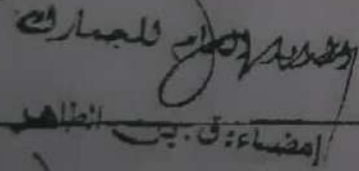 المدير العام للجمارك
إمضاء: ق. بن الطاهر